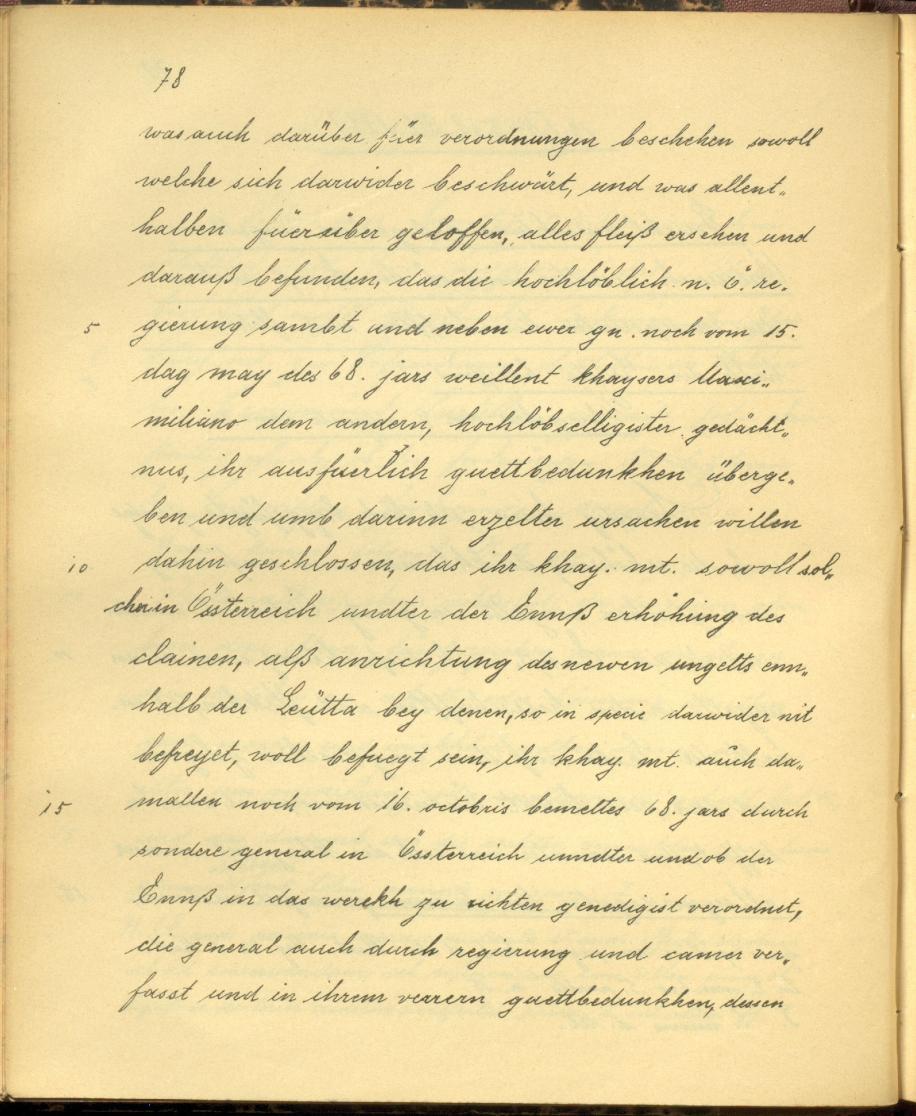 78
was auch darüber füer verordnungen beschehen sowoll
welche sich darwider beschwärt, und was allent„
halben füerüber geloffen, alles fleiß ersehen und
darauß befunden, das die hochlöblich n. ö. re„
5 gierung sambt und neben ewer gn. noch vom 15.
dag may des 68. jars weillent khaysers Maxi„
miliano dem andern, hochlöbselligister gedächt„
nus, ihr ausfüerlich guettbedunkhen überge„
ben und umb darinn erzelter ursachen willen
10 dahin geschlossen, das ihr khay. mt. sowoll sol„
chen in Össterreich undter der Ennß erhöhung des
clainen, alß anrichtung des newen ungelts enn„
halb der Leütta bey denen, so in specie darwider nit
befreyet, woll befuegt sein, ihr khay. mt. auch da„
15 mallen noch vom 16. octobris bemeltes 68. jars durch
sondere general in Össterreich unndter und ob der
Ennß in das werekh zu richten genedigist verordnet,
die general auch durch regierung und camer ver„
fasst und in ihrem verrern guettbedunkhen, dessen